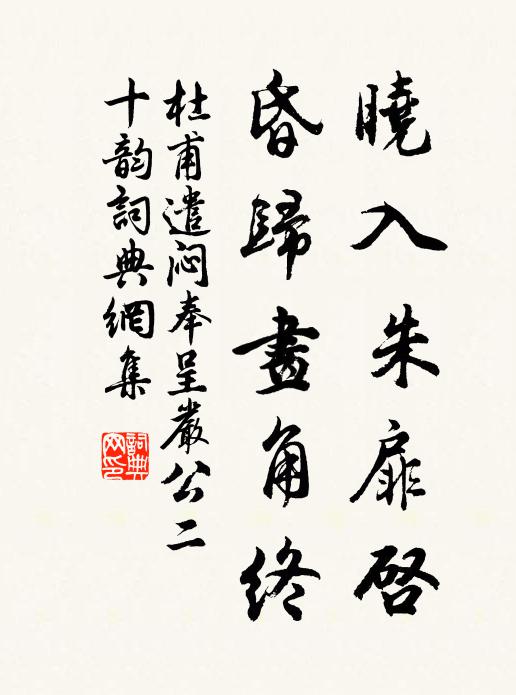 曉入朱扉啓
昏歸畫角終
杜甫遣闷奉呈嚴公二
十韵詞典網集
詞典网印